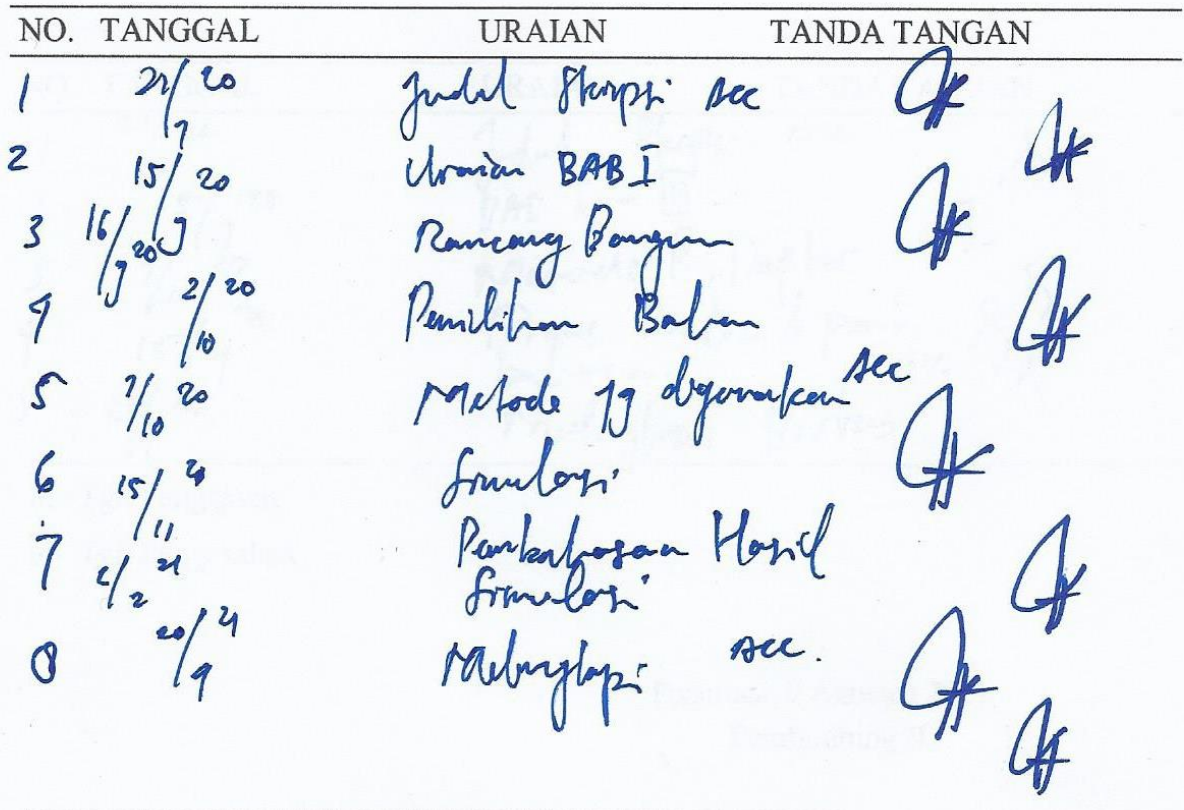 NO. TANGGAL URAIAN TANDA TANGAN
1 Judul Skripsi ACC
2 15/9 20 Uraian BAB I
3 16/9 20 Rancang Bangun
4 2/10 20 Pemilihan Bahan
5 7/10 20 Metode yg digunakan ACC
6 15/11 Simulasi
7 2/2 21 Pembahasan Hasil
Simulasi
8 20/9 21 ACC.